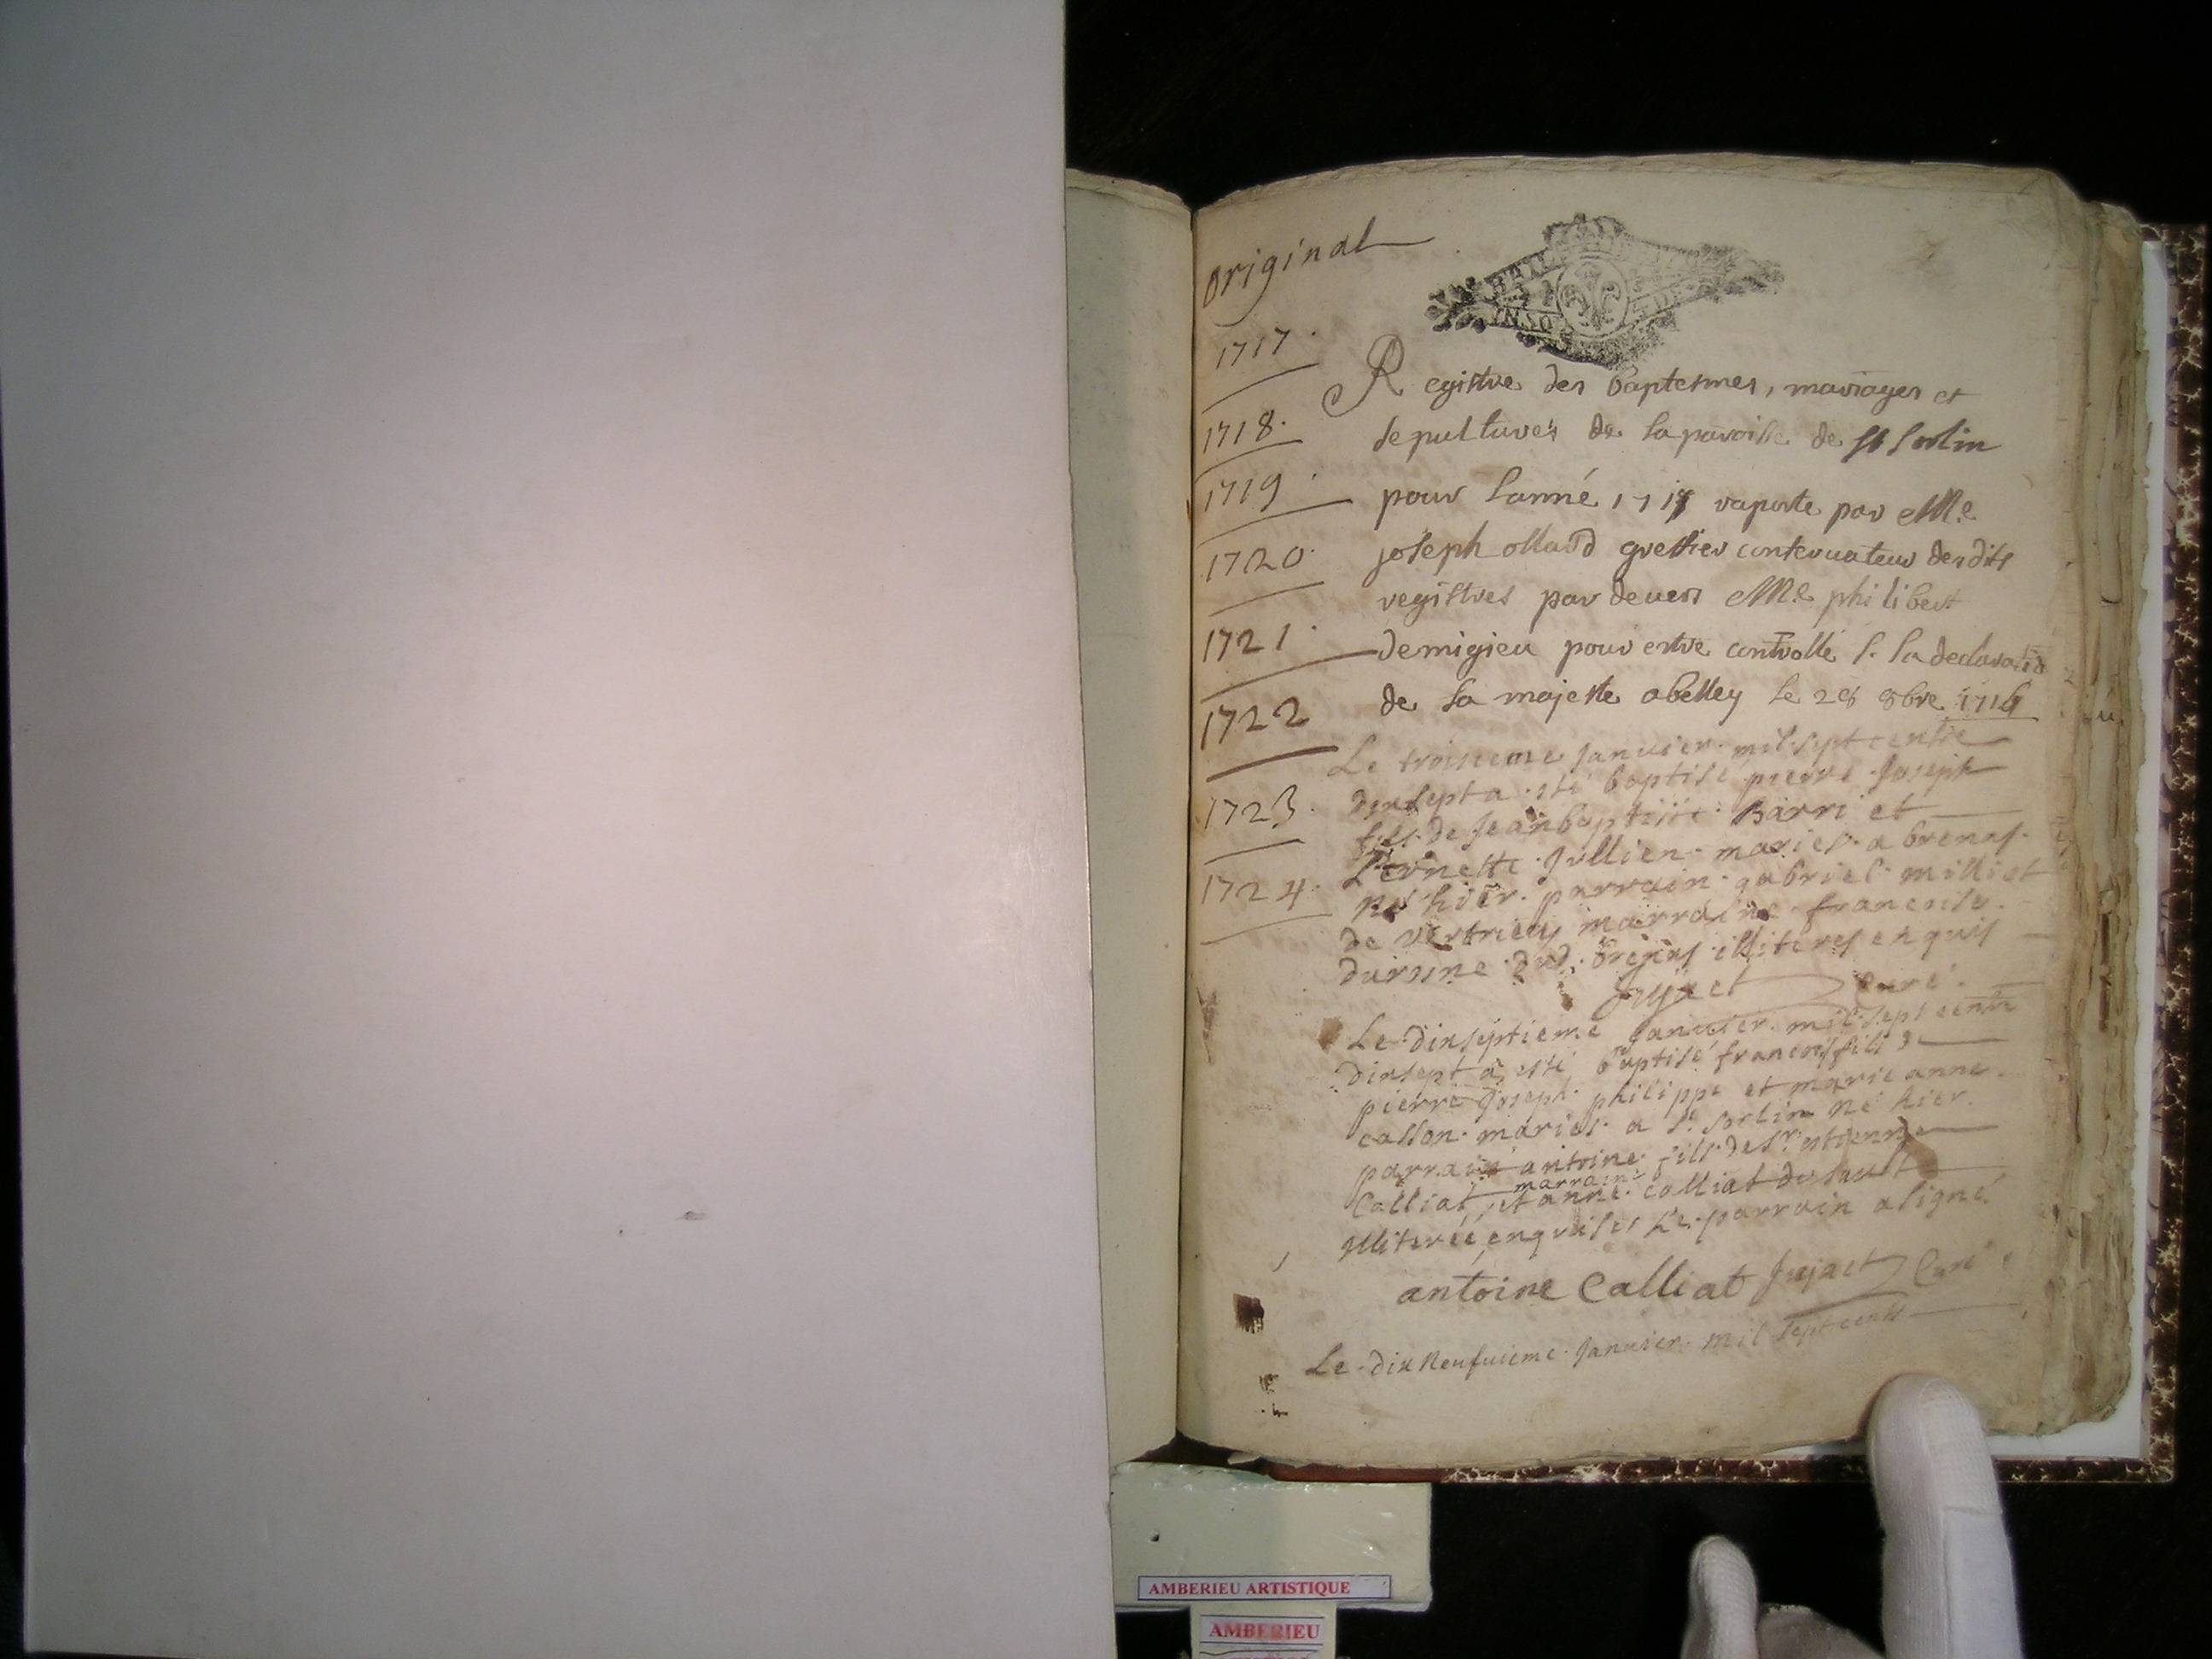 Original
1717
1718
1719
1720
1721
1722
1723
1724
Registre des baptesmes, mariages et
sepultures de la paroisse de St Sorlin
pour lanné 1717 raporte par Me
joseph ollard greffier conservateur desdits
registres par devers Me philibert
demigieu pour estre controlle s. la declaration
de sa majeste a belley le 28 8bre 1716
Le troisieme Janvier mil sept cents
dixsept a esté baptisé pierre Joseph
fils de Jean baptiste Barri et
Pernette Jullien mariés a brenas
né hier parrain gabriel milliet
de vertrieu marraine francoise
dud. brenas illiteres enquis
Jujaet Curé
Le dixseptieme Janvier mil sept cents
dixsept a esté baptisé francois fils de
pierre Joseph philippe et marie anne
casson mariés a St. Sorlin né hier
parrain antoine fils de Sr. estienne
Calliat, marraine et anne calliat du sault
illiterée enquises Le parrain a signé
antoine Calliat Jujaet Curé
Le dix neufuieme Janvier mil sept cents
AMBERIEU ARTISTIQUE
AMBERIEU